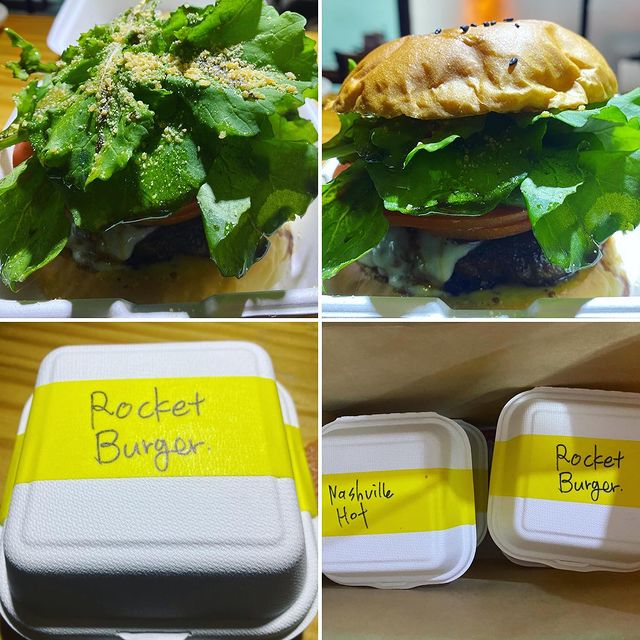 Rocket
Burger.
Nashville
Hot
Rocket
Burger.